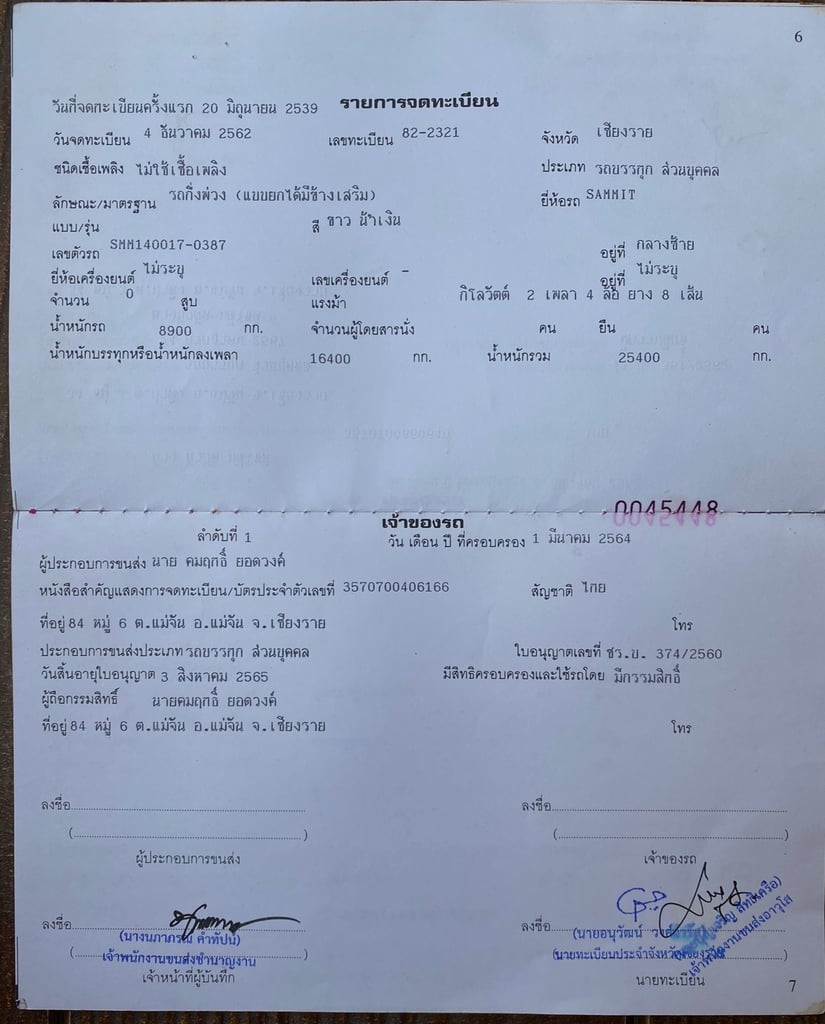 6
วันที่จดทะเบียนครั้งแรก 20 มิถุนายน 2539 รายการจดทะเบียน
วันจดทะเบียน 4 ธันวาคม 2562 เลขทะเบียน 82-2321 จังหวัด เชียงราย
ชนิดเชื้อเพลิง ไม่ใช้เชื้อเพลิง ประเภท รถบรรทุก ส่วนบุคคล
ลักษณะ/มาตรฐาน รถกึ่งพ่วง (แบบยกได้มีข้างเสริม) ยี่ห้อรถ SAMMIT
แบบ/รุ่น สี ขาว น้ำเงิน
เลขตัวรถ SMM140017-0387 อยู่ที่ กลางซ้าย
ยี่ห้อเครื่องยนต์ ไม่ระบุ เลขเครื่องยนต์ - อยู่ที่ ไม่ระบุ
จำนวน 0 สูบ แรงม้า กิโลวัตต์ 2 เพลา 4 ล้อ ยาง 8 เส้น
น้ำหนักรถ 8900 กก. จำนวนผู้โดยสารนั่ง คน ยืน คน
น้ำหนักบรรทุกหรือน้ำหนักลงเพลา 16400 กก. น้ำหนักรวม 25400 กก.
0045448
เจ้าของรถ
ลำดับที่ 1 วัน เดือน ปี ที่ครอบครอง 1 มีนาคม 2564
ผู้ประกอบการขนส่ง นาย คมฤทธิ์ ยอดวงค์
หนังสือสำคัญแสดงการจดทะเบียน/บัตรประจำตัวเลขที่ 3570700406166 สัญชาติ ไทย
ที่อยู่ 84 หมู่ 6 ต.แม่จัน อ.แม่จัน จ.เชียงราย โทร
ประกอบการขนส่งประเภท รถบรรทุก ส่วนบุคคล ใบอนุญาตเลขที่ ชร.บ. 374/2560
วันสิ้นอายุใบอนุญาต 3 สิงหาคม 2565 มีสิทธิครอบครองและใช้รถโดย มีกรรมสิทธิ์
ผู้ถือกรรมสิทธิ์ นายคมฤทธิ์ ยอดวงค์
ที่อยู่ 84 หมู่ 6 ต.แม่จัน อ.แม่จัน จ.เชียงราย โทร
ลงชื่อ ลงชื่อ
(....) (....)
ผู้ประกอบการขนส่ง เจ้าของรถ
ลงชื่อ ลงชื่อ
(นางนภาภรณ์ คำทิปน์) (นายอนุวัฒน์
เจ้าพนักงานขนส่งชำนาญงาน นายทะเบียนประจำจังหวัดเชียงราย
เจ้าพนักงานขนส่งอาวุโส
เจ้าหน้าที่ผู้บันทึก นายทะเบียน
7